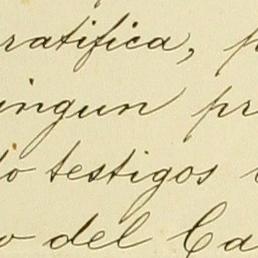 ratifica, p
ingun pr
to testigos
o del Ca